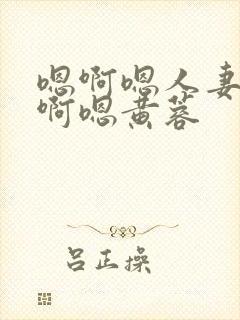 嗯啊嗯人妻
啊嗯黄蓉
吕正操